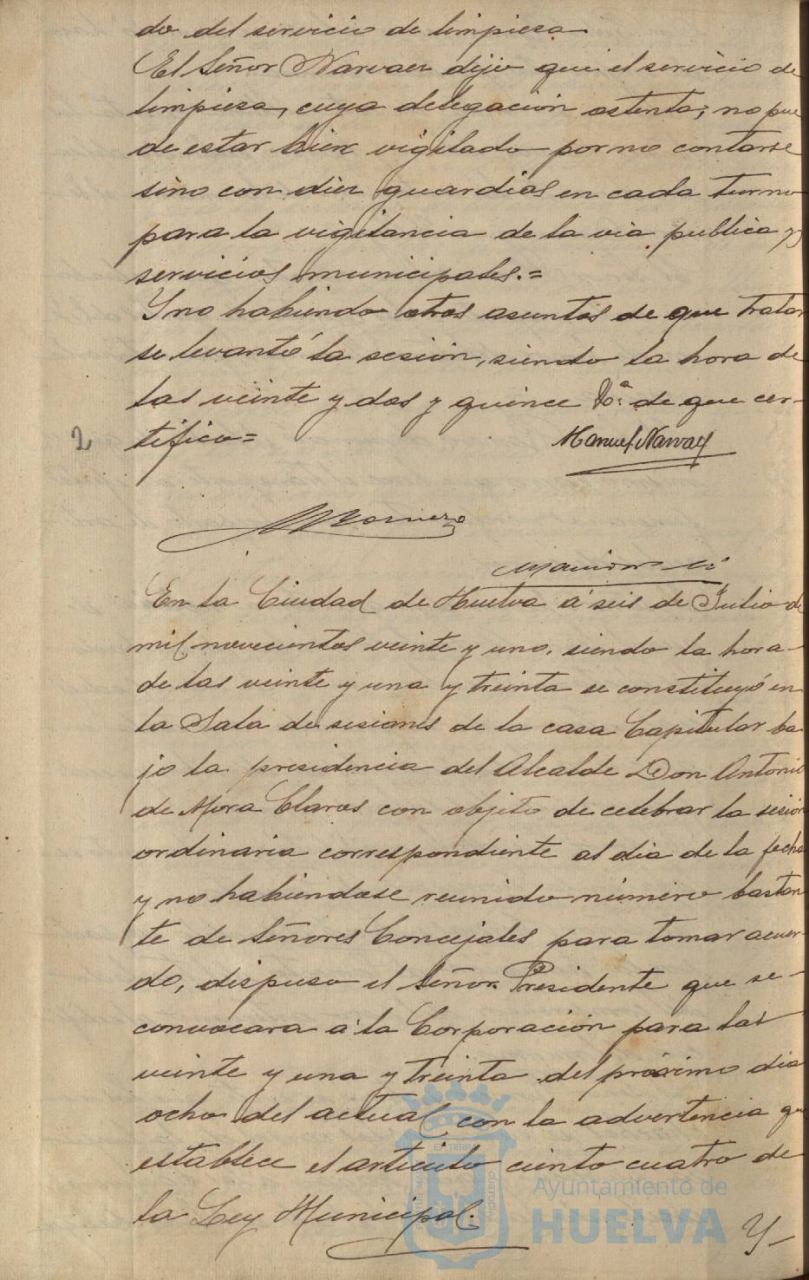 do del servicio de limpiesa
El Señor Narvaez dijo que el servicio de
limpiesa, cuya delegación ostenta, no pue
de estar bien vigilado por no contarse
sino con diez guardias en cada turno
para la vigilancia de la via publica y
servicios municipales.=
Y no habiendo otros asuntos de que tratar
se levantó la sesión, siendo la hora de
las veinte y dos y quince de que cer-
2
tifico=
Manuel Narvaez
En la Ciudad de Huelva á seis de Julio de
mil novecientos veinte y uno, siendo la hora
de las veinte y una y treinta se constituyó en
la Sala de sesiones de la casa Capitular ba
jo la presidencia del Alcalde Don Antonio
de Mora Claros con objeto de celebrar la sesión
ordinaria correspondiente al dia de la fecha
y no habiendose reunido número bastan
te de Señores Concejales para tomar acuer-
do, dispuso el Señor Presidente que se
convocara á la Corporación para las
veinte y una y treinta del próximo dia
ocho del actual con la advertencia que
establece el artículo ciento cuatro de
la Ley Municipal.
Y-
Ayuntamiento de
HUELVA